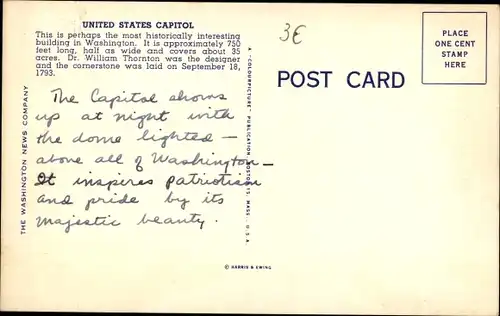 UNITED STATES CAPITOL
This is perhaps the most historically interesting
building in Washington. It is approximately 750
feet long, half as wide and covers about 35
acres. Dr. William Thornton was the designer
and the cornerstone was laid on September 18,
1793.
The Capitol shows
up at night with
the dome lighted —
above all of Washington —
It inspires patriotism
and pride by its
majestic beauty.
THE WASHINGTON NEWS COMPANY
A "COLOURPICTURE" PUBLICATION BOSTON 15, MASS., U.S.A.
3€
POST CARD
PLACE
ONE CENT
STAMP
HERE
© HARRIS & EWING